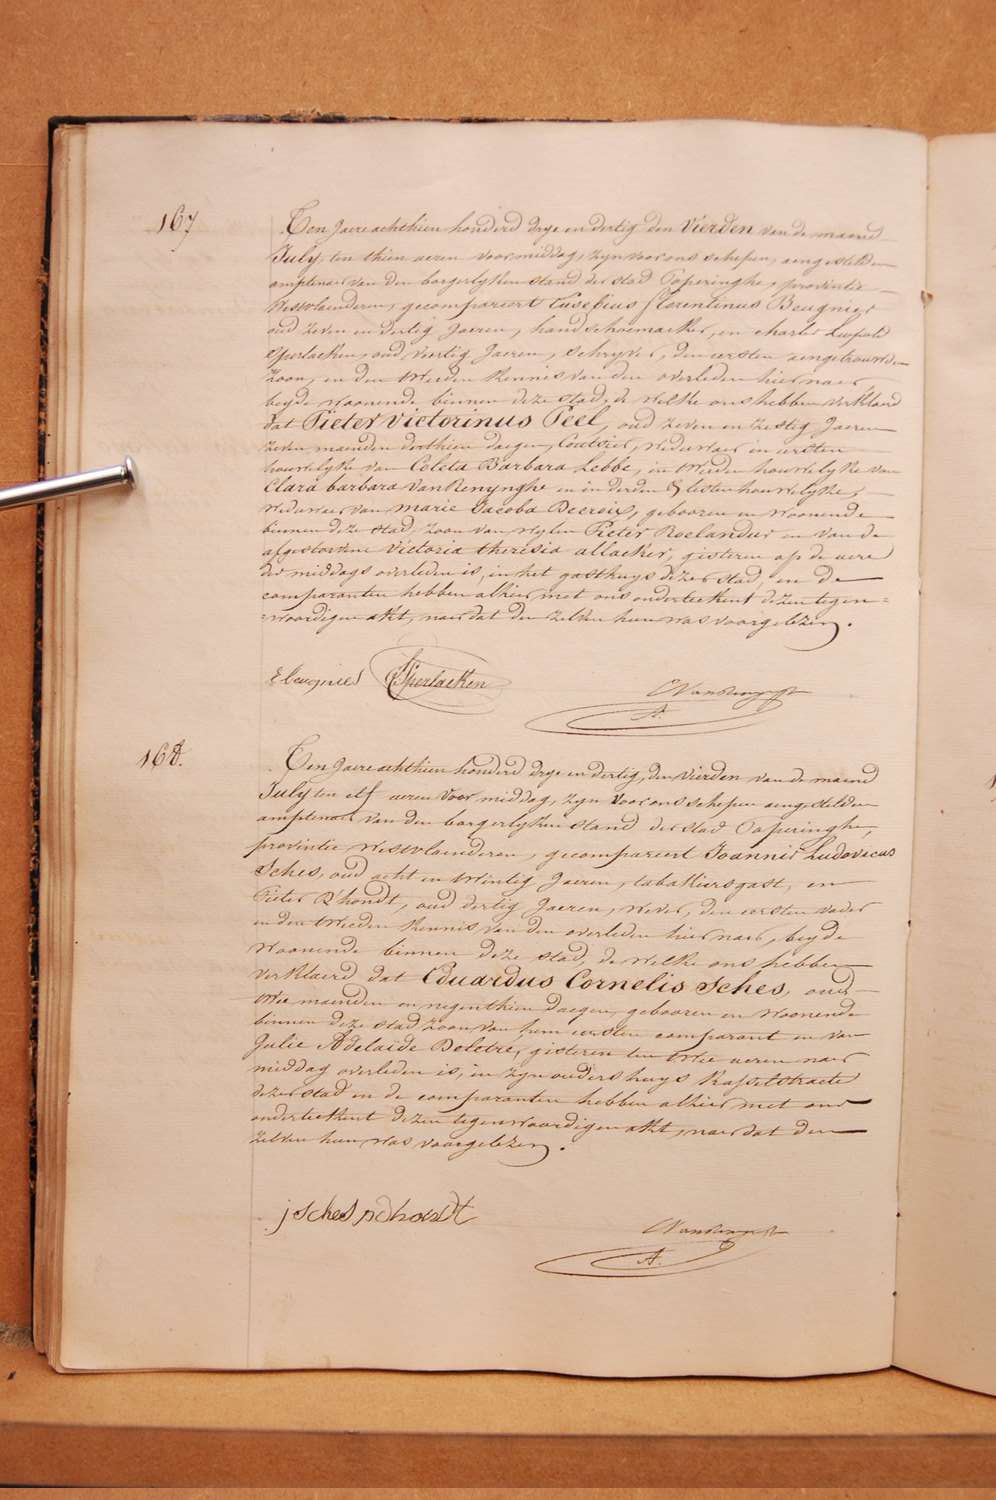 167
Ten Jaere achthien honderd drye en dertig den Vierden van de maend
July, ten thien ueren voormiddag, zyn voor ons schepen, aengestelden
amptenaer van den borgerlyken stand der stad Poperinghe, provintie
Westvlaenderen, gecompareert Eusebius Florentinus Beugnies
oud zeven en dertig Jaeren, handschoemaeker, en Charles Leopold
Sperlaeken, oud veertig Jaeren, schryver, den eersten aengetrouwden
zoon, en den tweeden kennis van den overleden hier naer
beyde woonende binnen deze stad, de welke ons hebben verklaerd
dat Pieter Victorinus Peel, oud zeven en zestig Jaeren
zeven maenden derthien daegen, Coutrier, weduwaer in eersten
houwelyke van Coleta Barbara Lebbe, in tweeden houwelyke van
Clara barbara VanRenynghe en in derden & lesten houwelyke,
weduwaer van marie Jacoba Decroix, gebooren en woonende
binnen deze stad, zoon van wylen Pieter Roelandus en van de
afgestorvene Victoria theresia allaeker, gisteren op de uere
der middags overleden is, in het gasthuys dezer stad, en de
comparanten hebben alhier met ons onderteekent dezen tegen=
=woordigen akt, naer dat den zelven hun was voorgelezen.
E Beugnies Sperlaeken
A.
168.
Ten Jaere achthien honderd drye en dertig, den vierden van de maend
July ten elf ueren voor middag, zyn voor ons schepen aengestelden
amptenaer van den borgerlyken stand der stad Poperinghe,
provintie Westvlaenderen, gecompareert Joannis Ludovicus
Sches, oud acht en twintig Jaeren, tabakkiersgast, en
Pieter D'hondt, oud dertig Jaeren, wever, den eersten vader
en den tweeden kennis van den overleden hier naer, beyde
woonende binnen deze stad, de welke ons hebben
verklaerd dat Eduardus Cornelis Sches, oud
twee maenden en negenthien daegen, gebooren en woonende
binnen deze stad zoon van hem eersten comparant en van
Julie Adelaide Delctre, gisteren ten twee ueren naer
middag overleden is, in zyn ouders huys Kasselstraete
dezer stad en de comparanten hebben alhier met ons
onderteekent dezen tegenwoordigen akt, naer dat den
zelven hun was voorgelezen.
j sches p dhondt
A.